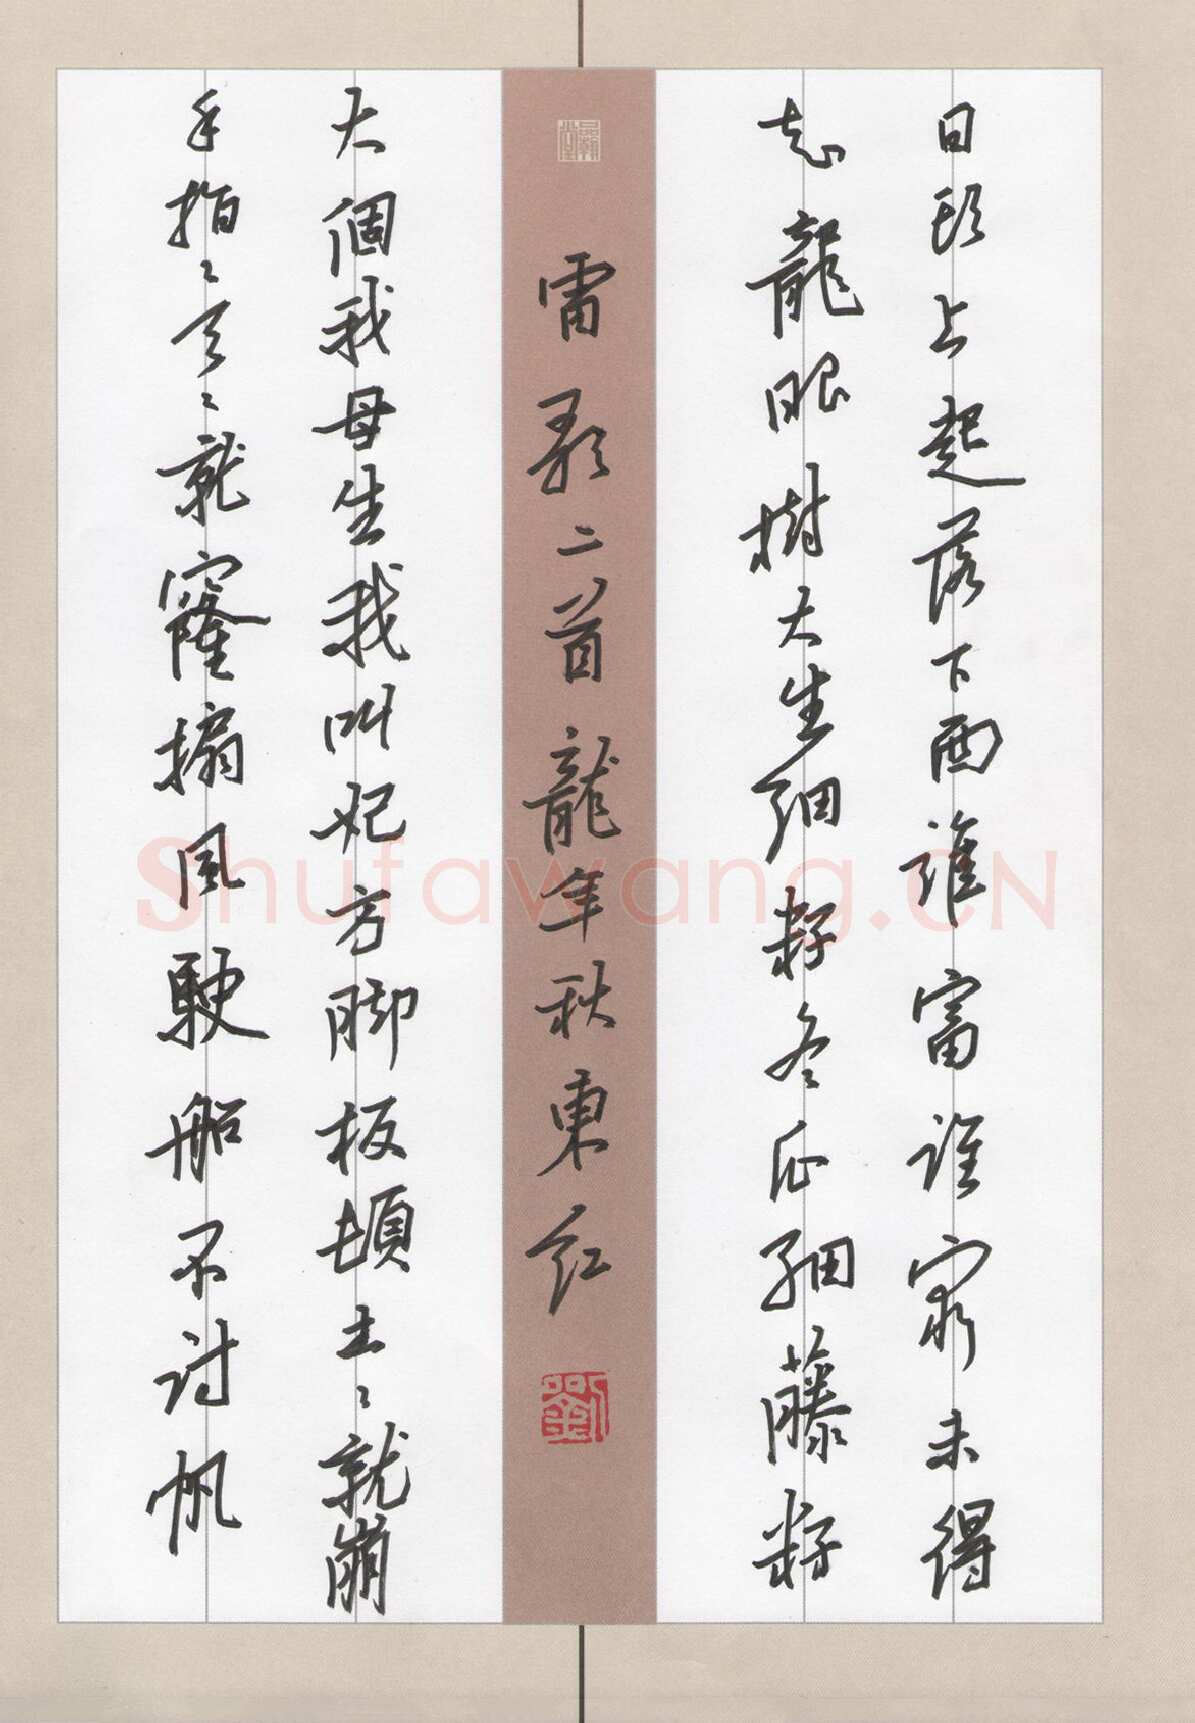 日頭上起落下西誰富誰窮未得
知龍眼樹大生細籽冬瓜細藤籽
雷歌二首龍年秋東紅
劉
大個我母生我叫妃方脚板頓土〻就崩
手指〻天〻就窿搧風駛船不討帆
Shufawang.CN